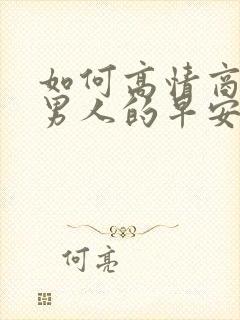 如何高情商
男人的早安
何亮